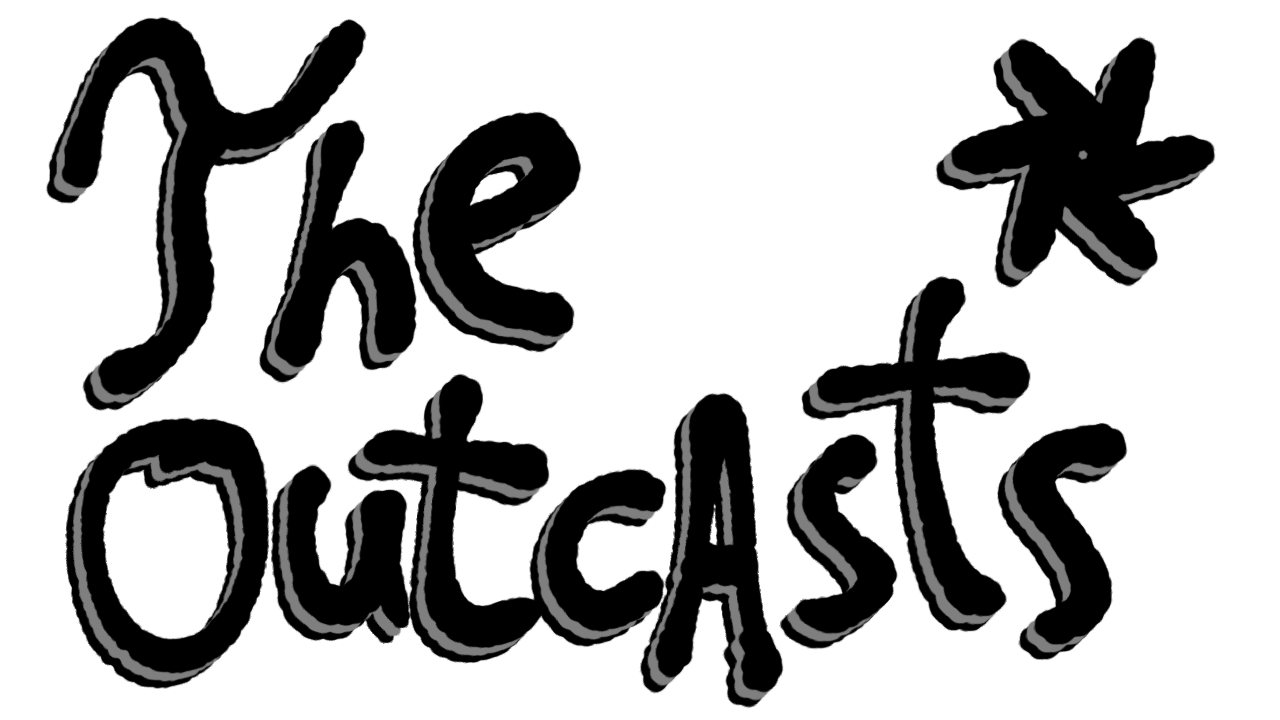 The *
OutcAsts